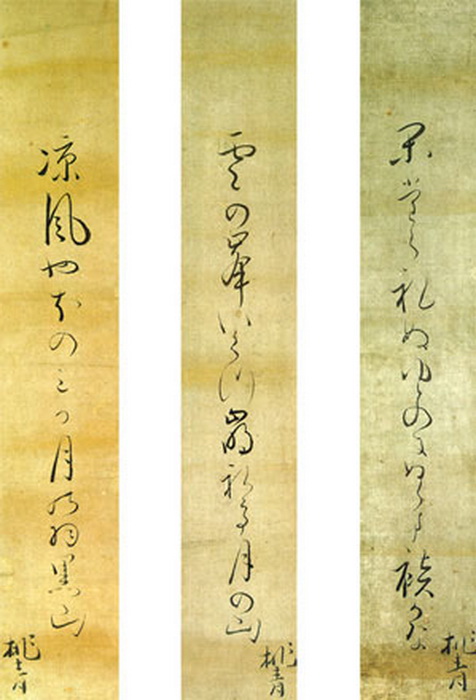 かたら礼ぬゆとのにぬらす袂かな
桃青
雲の峯いくつ崩礼て月の山
桃青
涼風やほの三か月の羽黒山
桃青